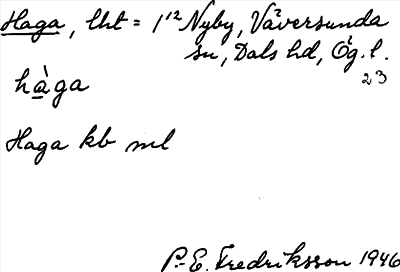 Haga, lht = 1¹² Nyby, Väversunda
sn, Dals hd, Ög. l.
23
hàga
Haga kb ml
P.-E. Fredriksson 1946